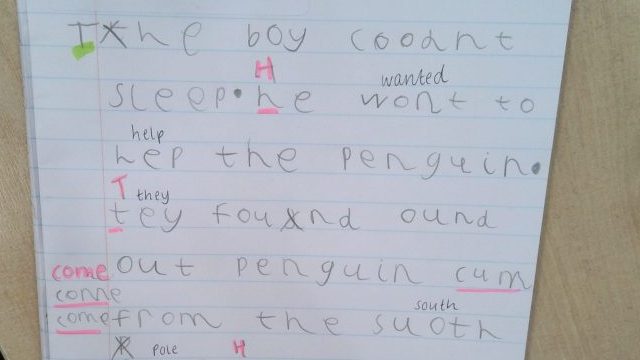 The boy coodnt
H wanted
sleep. he wont to
help
hep the penguin.
T they
tey found ound
come out penguin cum
come
south
come from the suoth
pole H